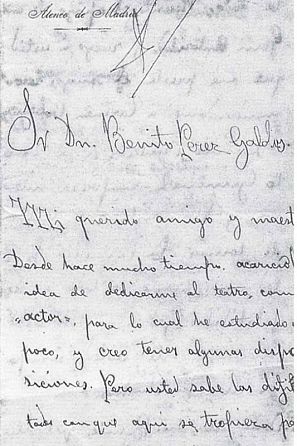 Ateneo de Madrid
Sr Dn. Benito Perez Galdós.
Mi querido amigo y maest
Desde hace mucho tiempo, acaricio l
idea de dedicarme al teatro, com
"actor", para lo cual he estudiado
poco, y creo tener algunas dispo
siciones. Pero usted sabe las dificul
tades con que aqui se tropieza pa